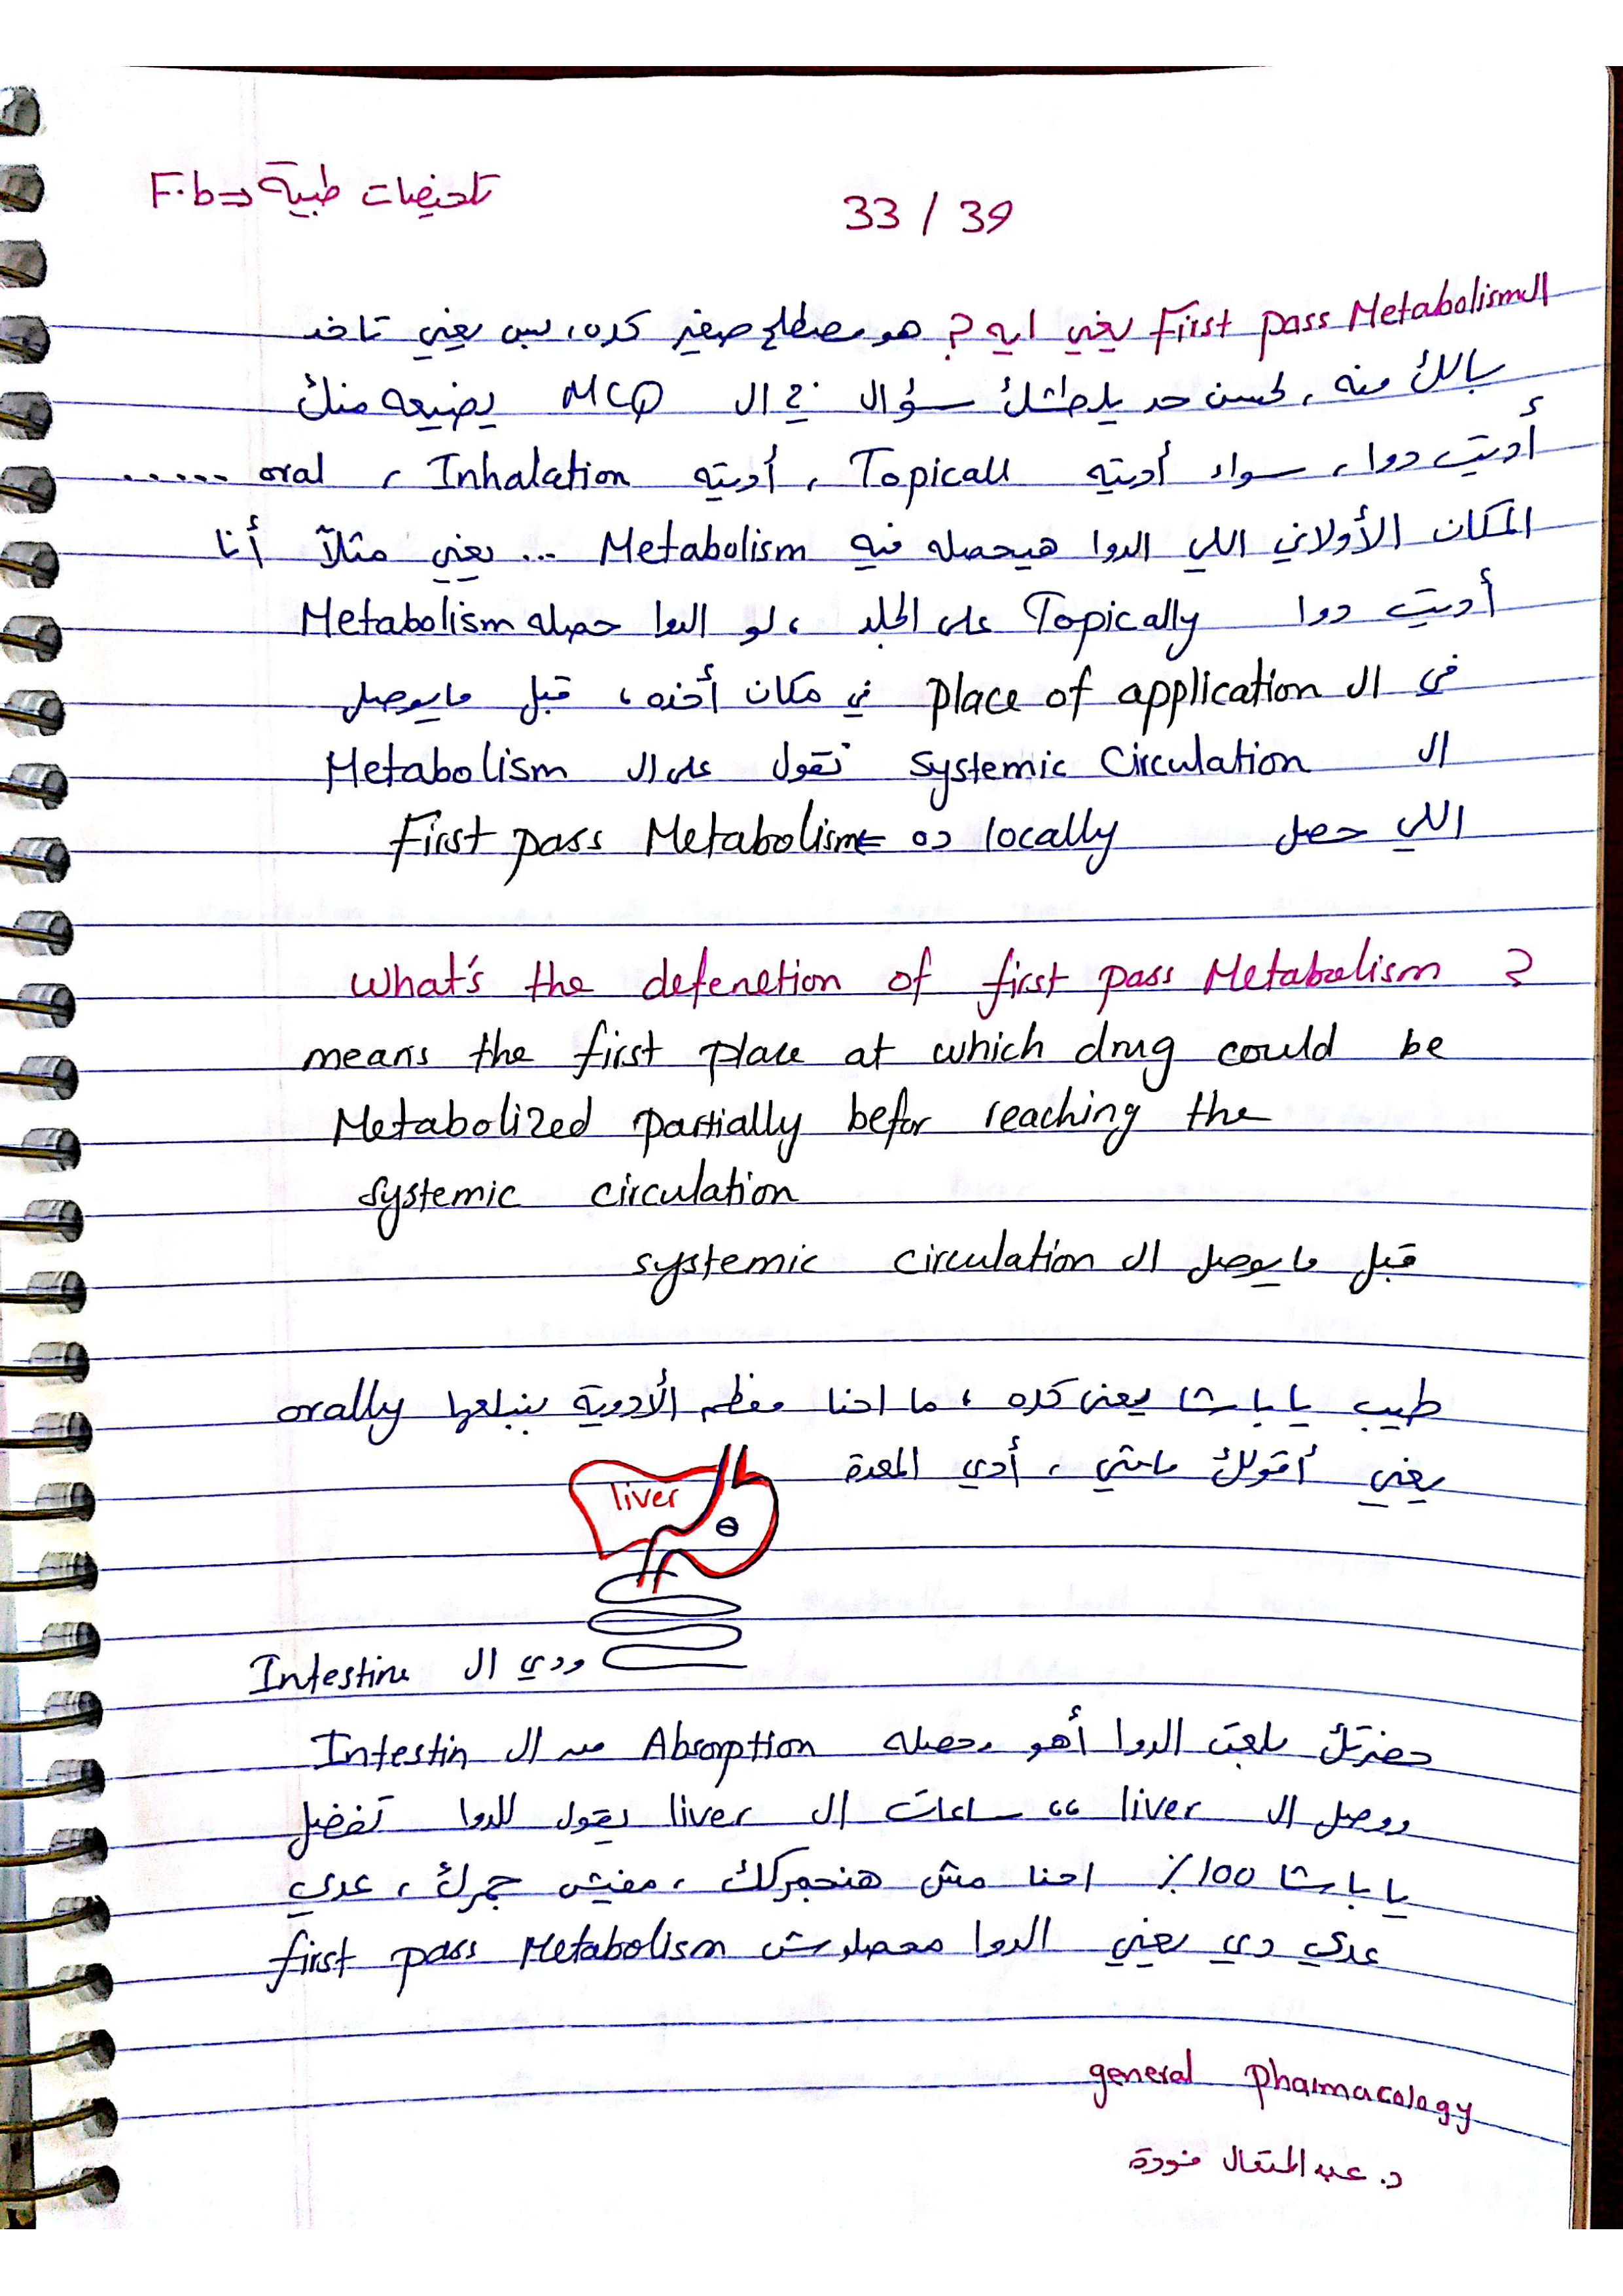 تلخيصات طبية ⇐ F.b
33 / 39
الـ First pass Metabolism يعني ايه ? هو مصطلح صغير كده، بس يعني تاخد
بالك منه، لحسن حد يلطشلك سؤال في ال MCQ يضيعه منك
أديت دوا، سواء أديته Topicall، أديته Inhalation، oral ......
المكان الأولاني اللي الدوا هيحصله فيه Metabolism ... يعني مثلاً أنا
أديت دوا Topically على الجلد، لو الدوا حصله Metabolism
في ال place of application في مكان أخذه، قبل مايوصل
ال systemic Circulation نقول على ال Metabolism
اللي حصل locally ده ⇐ First pass Metabolism
What's the defenetion of first pass Metabolism ?
means the first place at which drug could be
Metabolized partially befor reaching the
systemic circulation
قبل مايوصل ال systemic circulation
طيب يا باشا يعني كده، ما احنا معظم الأدوية بنبلعها orally
يعني أقولك ماشي، أدي المعدة
liver
ودي ال Intestine
حضرتك بلعت الدوا أهو وحصله Absorption من ال Intestin
ووصل ال liver ،، ساعات ال liver يقول للدوا تفضل
يا باشا 100٪ احنا مش هنجمركك، مفيش جمرك، عدي
عدي دي يعني الدوا محصلوش first pass Metabolism
general pharmacology
د. عبدالمتعال فودة